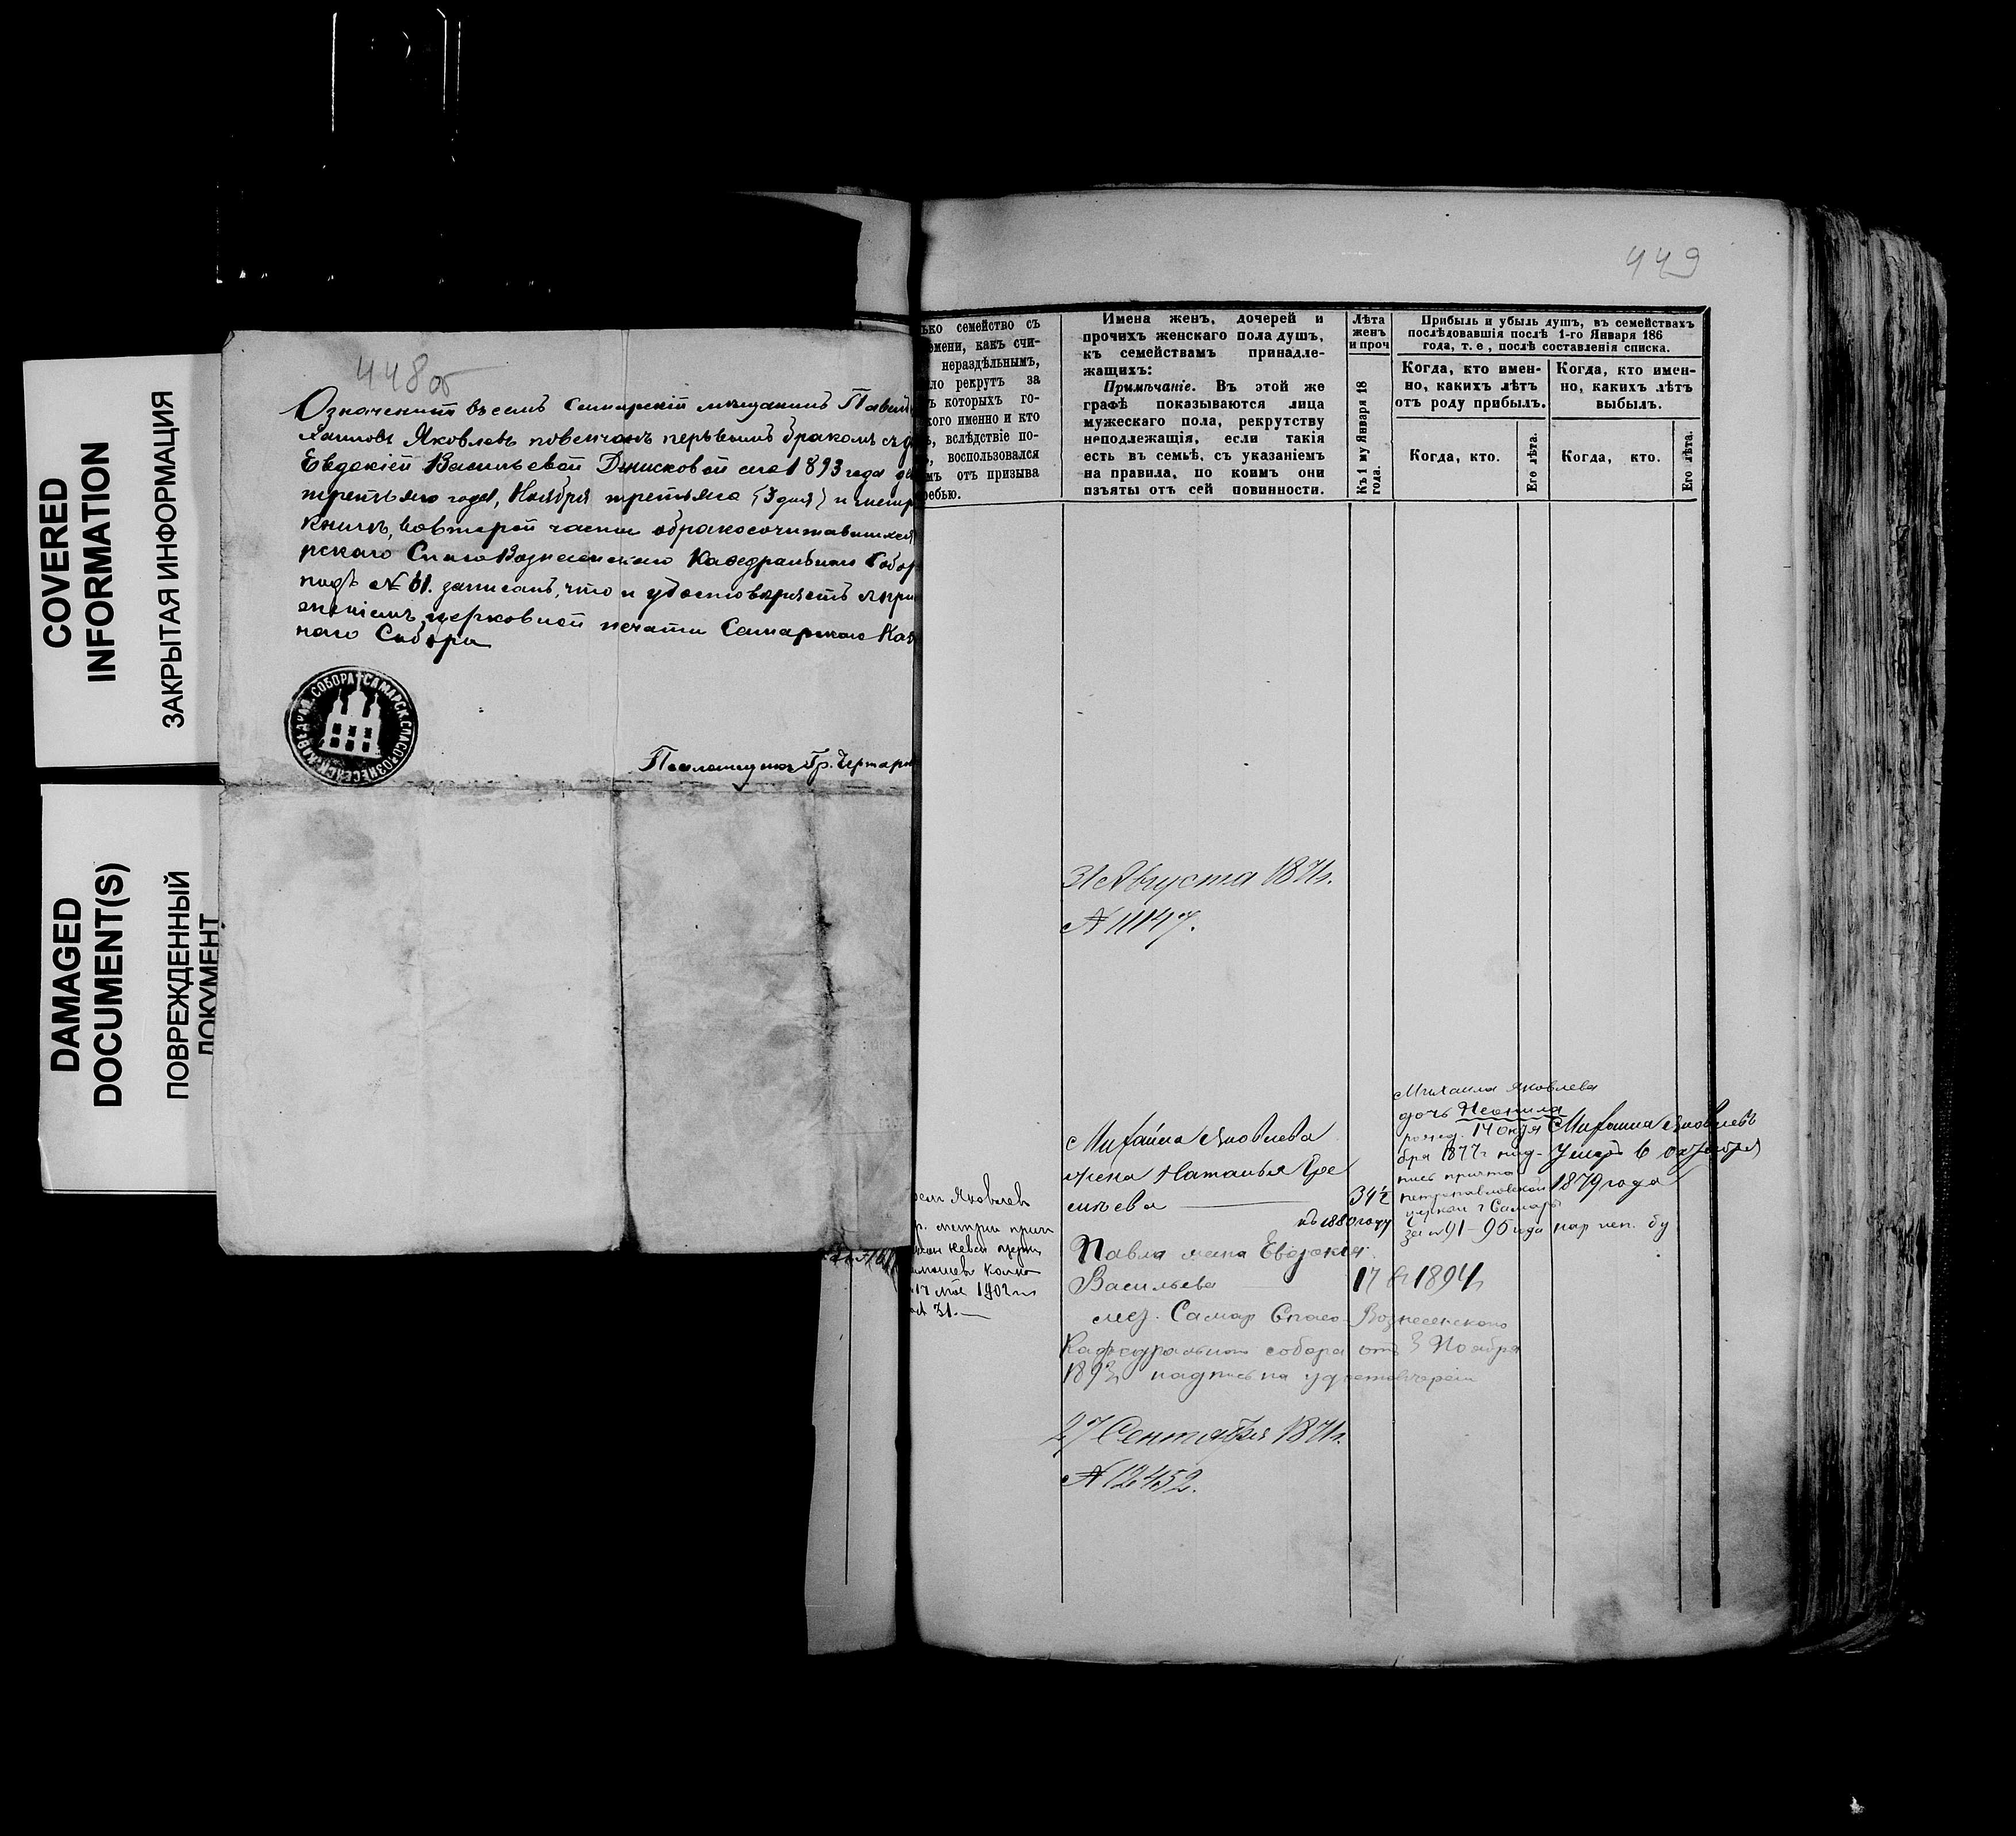 COVERED
INFORMATION
ЗАКРЫТАЯ ИНФОРМАЦИЯ
DAMAGED
DOCUMENT(S)
ПОВРЕЖДЕННЫЙ
ДОКУМЕНТ
448об
Означенный въ семъ Самарскій мѣщанинъ Павелъ
Яковлевъ повенчанъ первымъ бракомъ съ
Евдокіей Васильевой Денисковой 1893 года
третьяго года, Ноября третьяго (3 дня) и
книгѣ, во второй части о бракосочитавшихся
рскаго Спасо Вознесенскаго Кафедральнаго Собор
подъ № 61. записанъ, что и удостовѣряетъ
церковной печати Самарскаго
наго Собора
КАѲЕДРАЛ. СОБОРА САМАРСК. СПАСОВОЗНЕСЕНСК.
Псаломщикъ Гр.
449
ько семейство съ
емени, какъ счи-
нераздѣльнымъ,
ло рекрутъ за
ъ которыхъ го-
кого именно и кто
ъ, вслѣдствіе по-
, воспользовался
мъ отъ призыва
ребью.
Имена женъ, дочерей и
прочихъ женскаго пола душъ,
къ семействамъ принадле-
жащихъ:
Примѣчаніе. Въ этой же
графѣ показываются лица
мужескаго пола, рекрутству
неподлежащія, если такія
есть въ семьѣ, съ указаніемъ
на правила, по коимъ они
изъяты отъ сей повинности.
Лѣта
женъ
и проч
Къ 1 му Января 18
года.
Прибыль и убыль душъ, въ семействахъ
послѣдовавшія послѣ 1-го Января 186
года, т. е , послѣ составленія списка.
Когда, кто имен-
но, какихъ лѣтъ
отъ роду прибылъ.
Когда, кто имен-
но, какихъ лѣтъ
выбылъ.
Когда, кто.
Его лѣта.
Когда, кто.
Его лѣта.
31 Августа 1871г.
№ 11147.
Михаила Яковлева
дочь Неонила
рожд. 14 октя
бря 1877г
пись причта
петропавловской
церкви г Самары
за № 91 - 95 года
Михаила Яковлевъ
умеръ 6 октября
1879 года
Михайла Яковлева
жена Наталья
34½
къ 1880 году
Яковлев
метрич
церкви
17 1902
31.
Павла жена Евдокія
Васильева
17 1894г
мет. Самар Спасо-Вознесенскаго
Кафедральнаго собора отъ 3 Ноября
1893г надпись на
27 Сентября 1871г.
№ 12452.